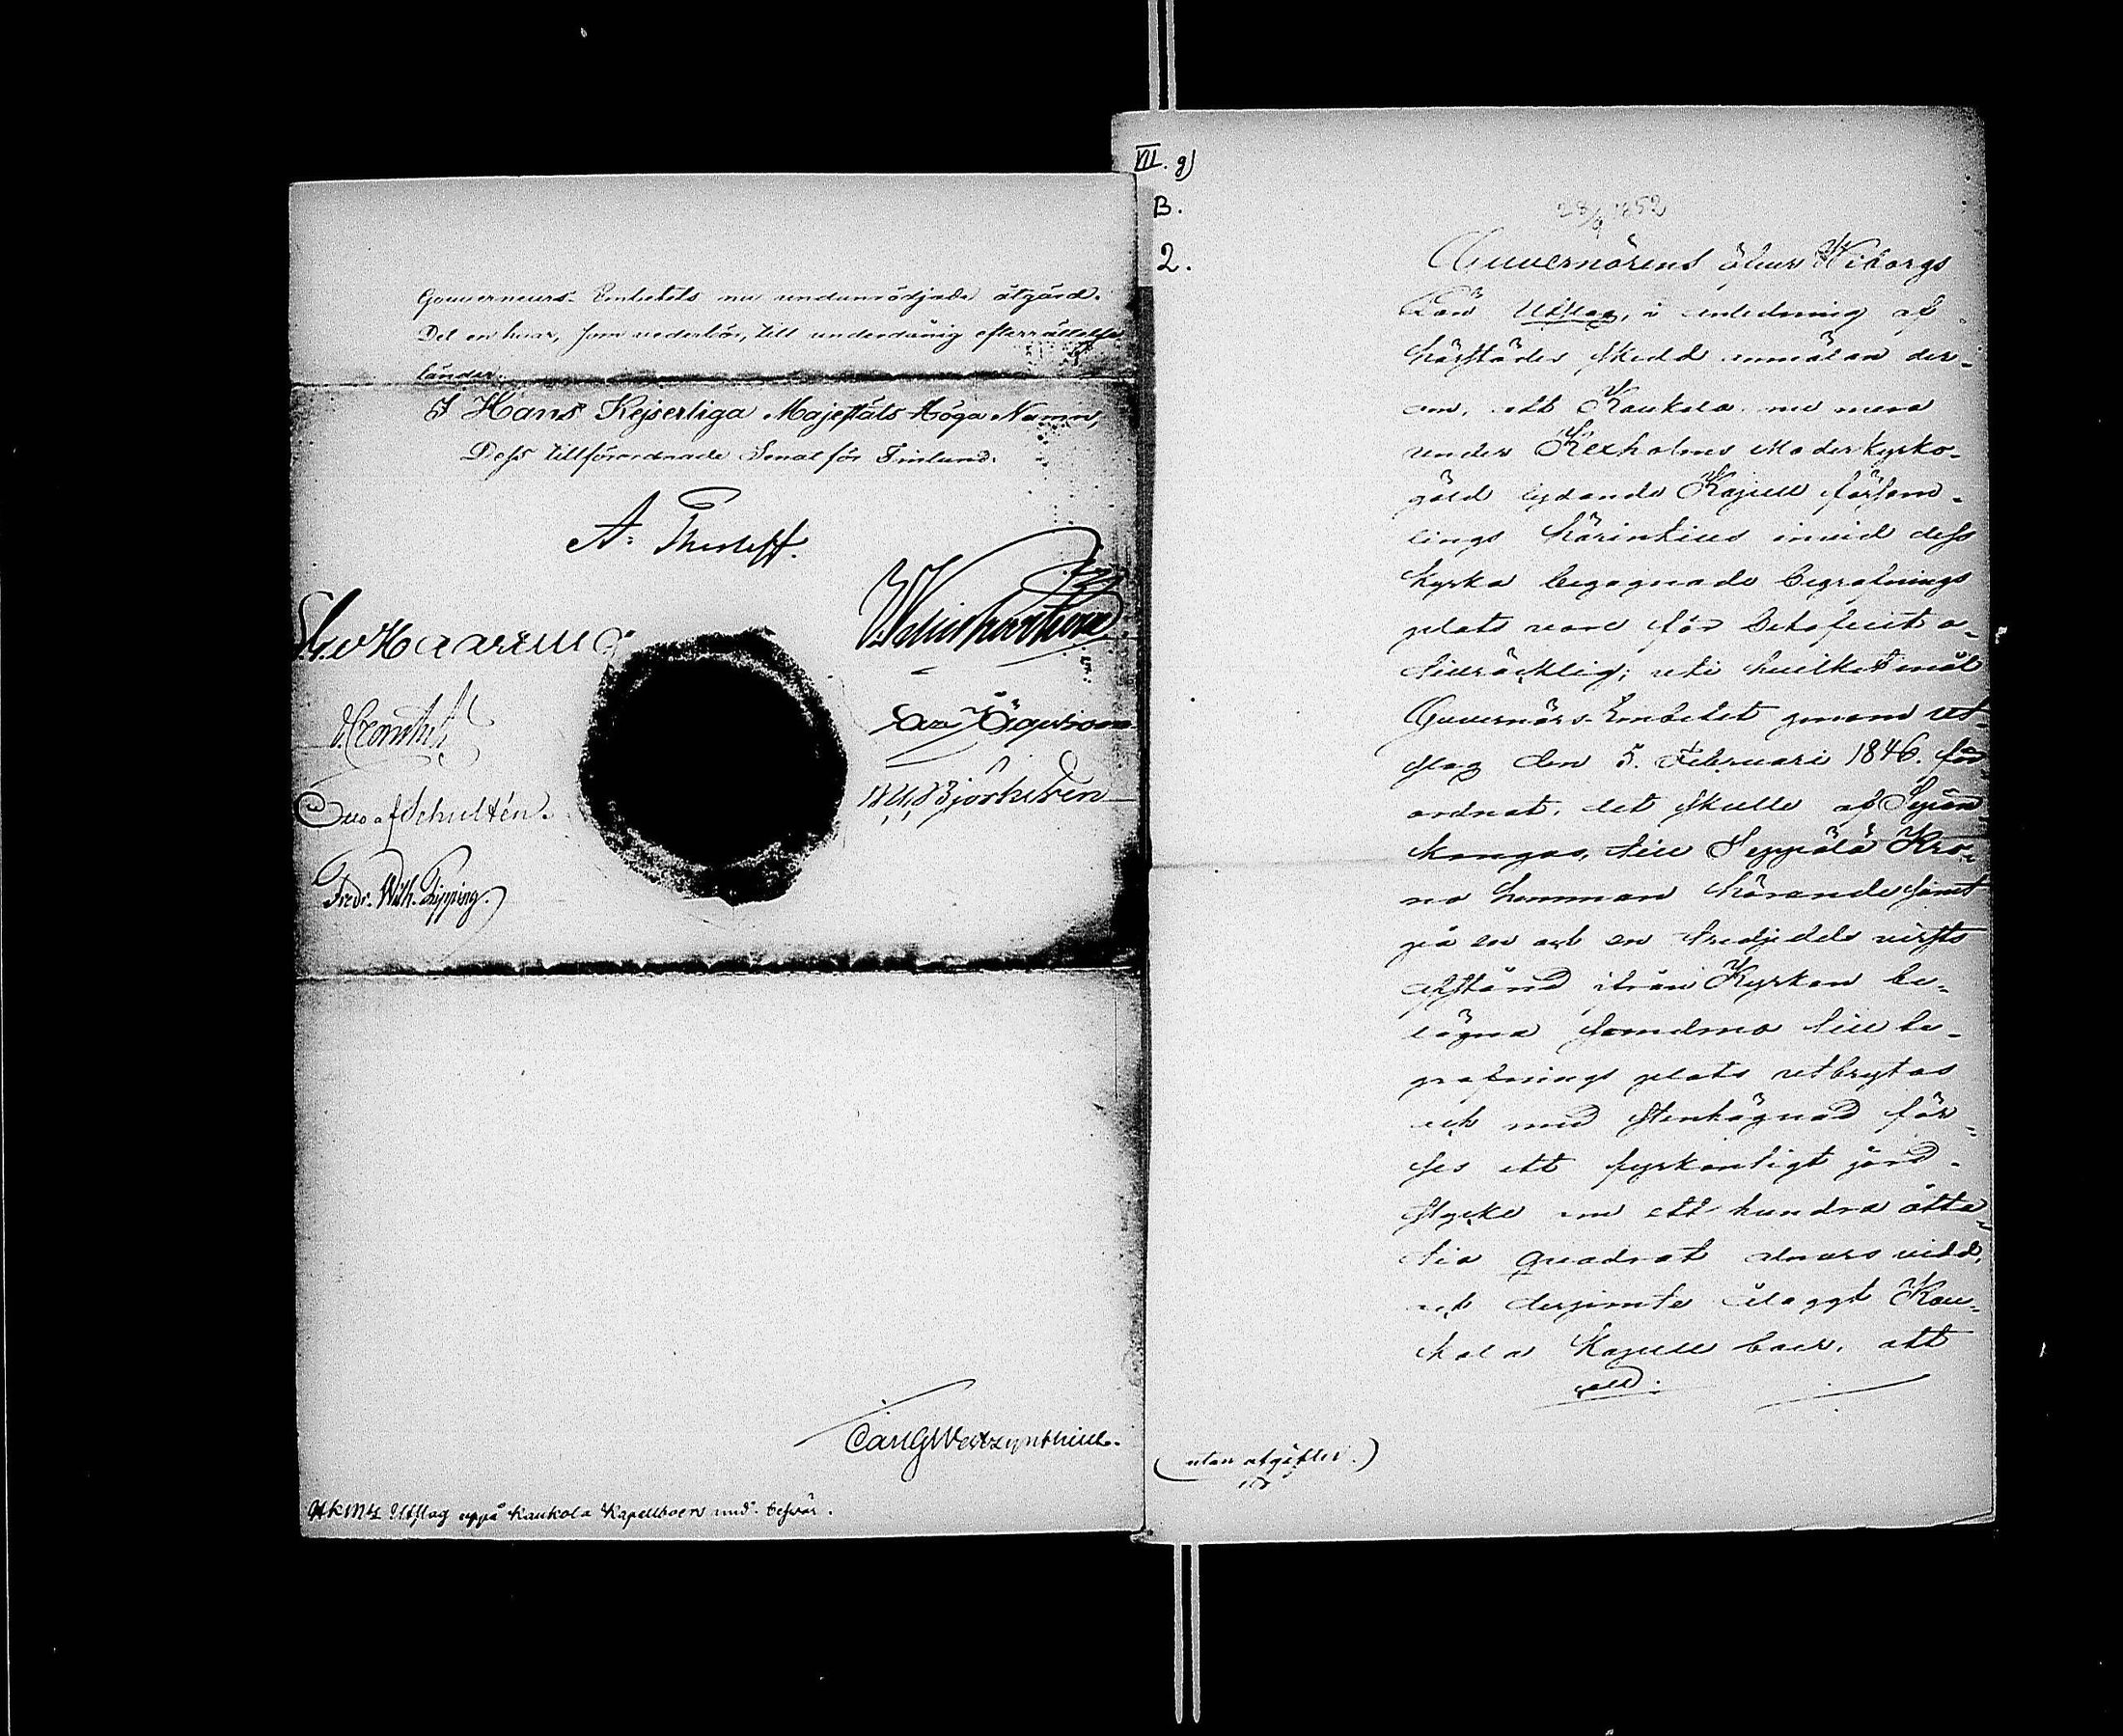 Gouverneurs-Embetets nu underströdjade åtgärd.
Det en hvar, som vederbör, till underdånig efterrättelse
länder.
I Hans Kejserliga Majestäts Höga Namn,
Dess tillförordnade Senat för Finland.
A. Thesleff.
Otto af Schultén.
Fredr. Wilh. Pipping.
Björksten
HKMts Utslag uppå Kaukola Kapellboers und. besvär.
VII. g)
B.
2.
28/9 1852
Guvernörens öfver Wiborgs
Län Utslag, i anledning af
härstädes skedd anmälan der-
om, att Kaukola nu mera
under Kexholms Moderkyrko-
gäld lydande Kapell försam-
lings härintills invid dess
kyrka begagnade begrafnings
plats vore för behofvet o-
tillräcklig; uti hvilket mål
Guvernörs-Embetet genom ut-
slag den 5. Februari 1846. för
ordnat, det skulle af
kangas, till Seppälä Kro-
no hemman hörande samt
på en och en tredjedels versts
afstånd ifrån Kyrkan be-
lägna sandmo till be-
grafnings plats utbrytas
och med stenhägnad för-
ses ett fyrkantigt jord-
stycke om ett hundra åtta-
tio quadrat alnars vidd,
och derjemte ålaggt Kau-
kola Kapell boer, att
(utan afgifter.)